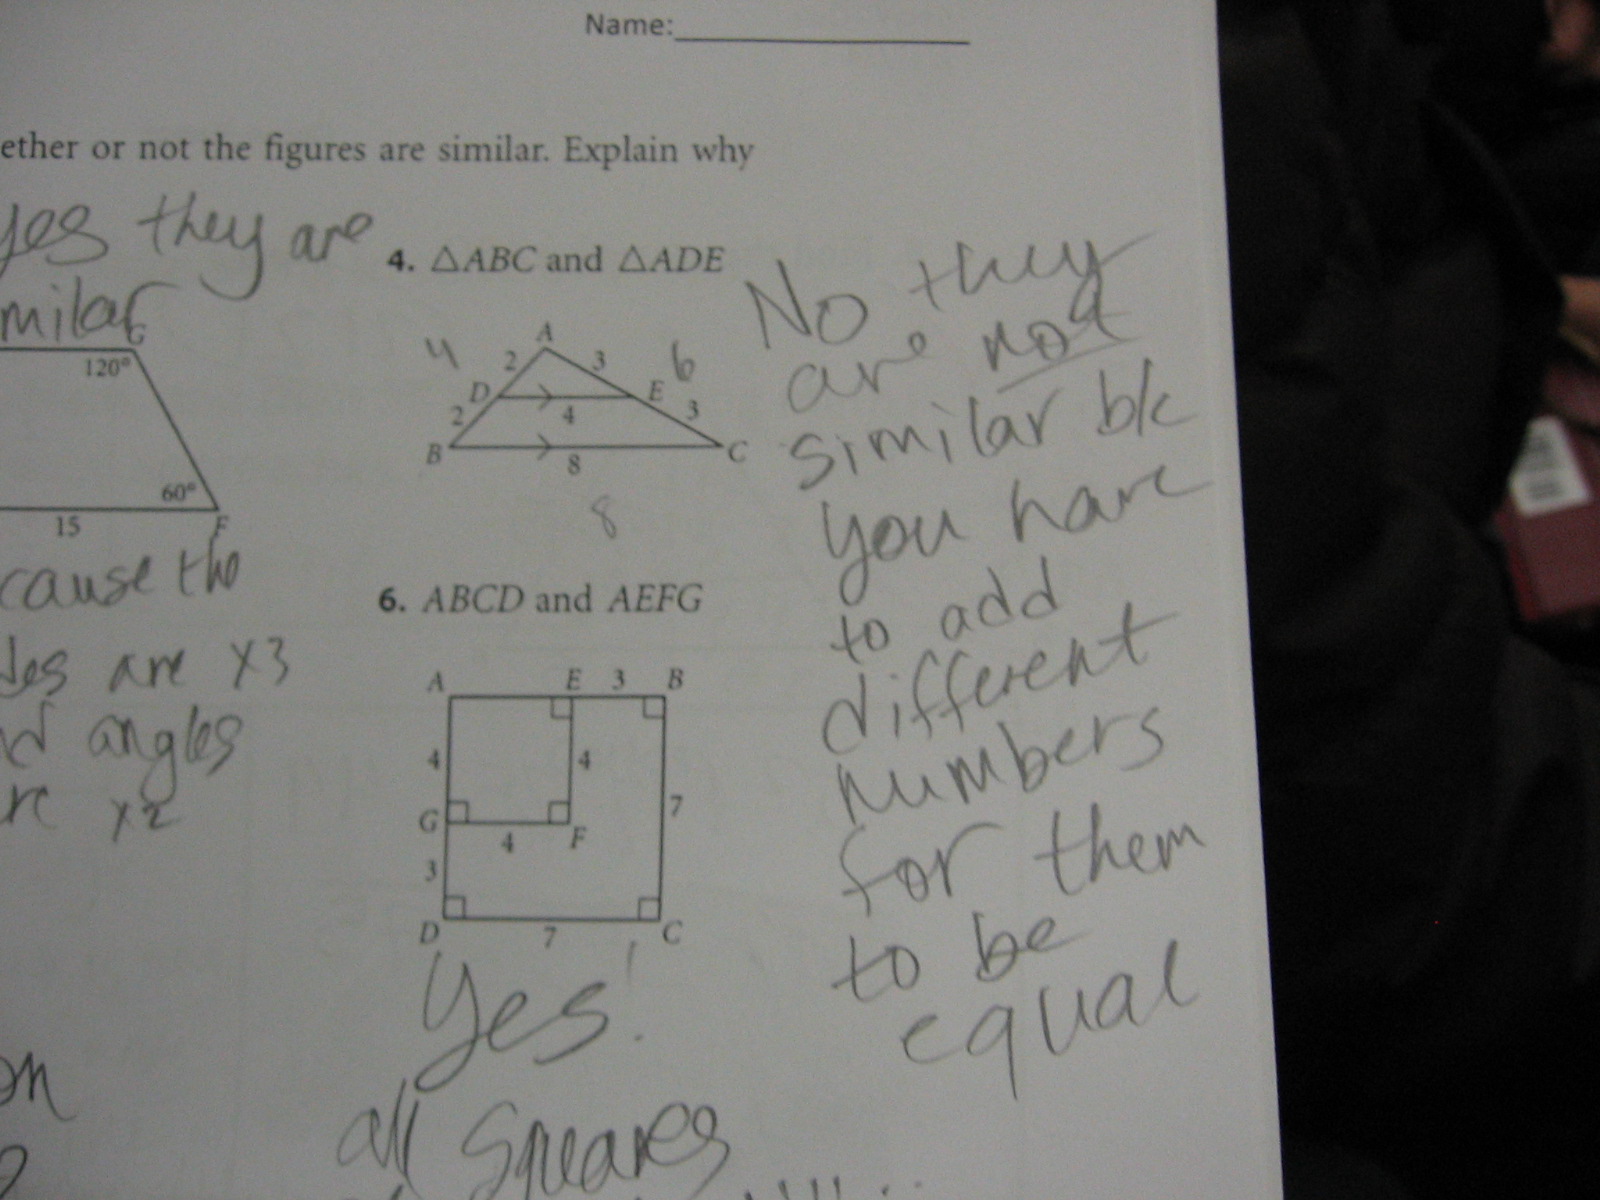 Name:
ether or not the figures are similar. Explain why
yes they are
milar
G
120°
60°
15
F
cause the
des are x3
d angles
re x2
on
4. △ABC and △ADE
4
A
2
3
6
D
E
2
4
3
B
C
8
8
No they
are not
similar b/c
you have
to add
different
numbers
for them
to be
equal
6. ABCD and AEFG
A
E
3
B
4
4
G
F
7
4
3
D
7
C
Yes!
all squares